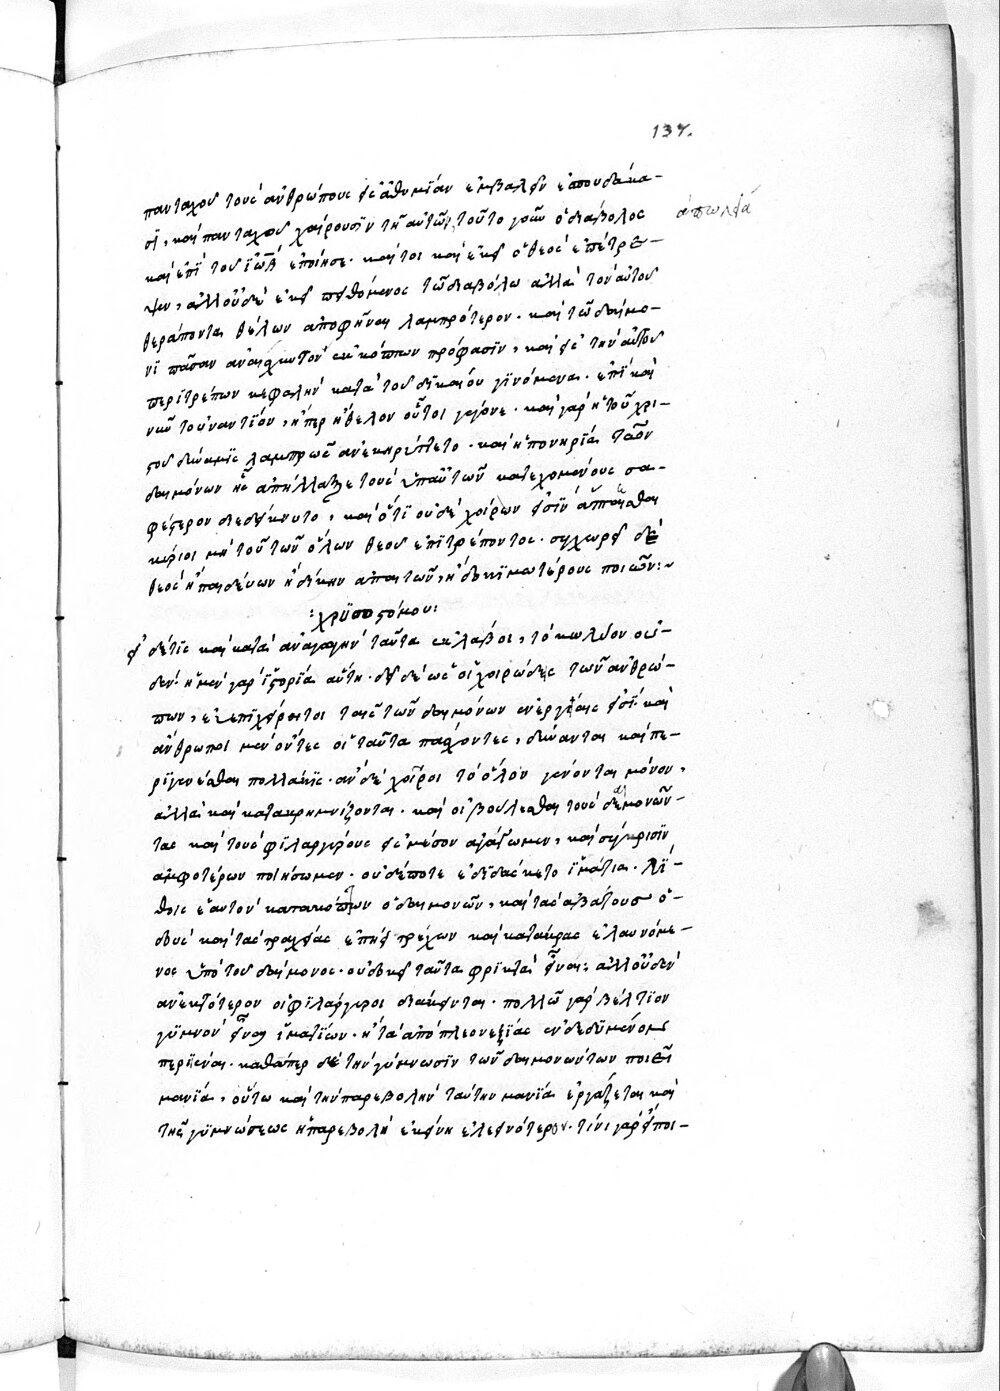 137.
πανταχοῦ τοὺς ἀνθρώπους εἰς ἀθυμίαν ἐμβαλεῖν ἐσπουδάκα-
σι, καὶ πανταχοῦ χαίρουσιν τῆ αὐτῶν τοῦτο γοῦν ὁ διάβολος
καὶ ἐπὶ τοῦ ἰὼβ ἐποίησε. καίτοι καὶ ἐκεῖ ὁ θεὸς ἐπέτρε-
ψεν, ἀλλ οὐδὲ ἐκεῖ πειθόμενος τῶ διαβόλω ἀλλὰ τὸν αὐτοῦ
θεράποντα θέλων ἀποφῆναι λαμπρότερον. καὶ τῶ δαίμο-
νι πᾶσαν ἀναίσχυντον ἐκκόπτων πρόφασιν, καὶ εἰς τὴν αὐτοῦ
περιτρέπων κεφαλὴν κατὰ τοῦ δικαίου γινόμενα. ἐπεὶ καὶ
νῦν τοὐναντίον, ἤπερ ἤθελον οὗτοι γέγονε. καὶ γὰρ ἡ τοῦ χρι-
στοῦ δύναμις λαμπρῶς ἀνεκηρύττετο. καὶ ἡ πονηρία τῶν
δαιμόνων ἧς ἀπήλλαξε τοὺς ὑπ αὐτῶν κατεχομένους σα-
φέστερον διεδείκνυτο, καὶ ὅτι οὐδὲ χοίρων εἰσὶν ἅπτεσθαι
κύριοι μὴ τοῦ τῶν ὅλων θεοῦ ἐπιτρέποντος. συγχωρεῖ δὲ
θεὸς ἢ παιδεύων ἢ δίκην ἀπαιτῶν, ἢ δοκιμωτέρους ποιῶν:~
:χρυσοστόμου:
εἰ δέ τις καὶ κατὰ ἀναγωγὴν ταῦτα ἐκλάβοι, τὸ κωλύον οὐ-
δέν. ἡ μὲν γὰρ ἱστορία αὕτη. δεῖ δὲ ὡς οἱ χοιρώδεις τῶν ἀνθρώ-
πων, εὐεπιχείρητοι ταῖς τῶν δαιμόνων ἐνεργείαις εἰσί. καὶ
ἄνθρωποι μὲν ὄντες οἱ ταῦτα πάσχοντες, δύνανται καὶ πε-
ριγενέσθαι πολλάκις. ἂν δὲ χοῖροι τὸ ὅλον γένονται μόνον,
ἀλλὰ καὶ κατακρημνίζονται. καὶ εἰ βούλεσθαι τοὺς δαιμονῶν-
τας καὶ τοὺς φιλαργύρους εἰς μέσον ἀγάγωμεν, καὶ σύγκρισιν
ἀμφοτέρων ποιήσωμεν. οὐδέποτε ἐδιδάσκετο ἱμάτια. λί-
θοις ἑαυτὸν κατακόπτων ὁ δαιμονῶν, καὶ τὰς ἀβάτους ὁ-
δοὺς καὶ τὰς τραχείας ἐπῄει τρέχων καὶ κατάκρας ἐλαυνόμε-
νος ὑπὸ τοῦ δαίμονος. οὐ δοκεῖ ταῦτα φρικτὰ εἶναι; ἀλλ οὐδὲν
ἀνεκτότερον οἱ φιλάργυροι διάκεινται. πολλῶ γὰρ βέλτιον
γυμνὸν εἶναι ἱματίων. ἢ τὰ ἀπὸ πλεονεξίας ἐνδεδυμένον
περιιέναι. καθάπερ δὲ τὴν γύμνωσιν τῶν δαιμονώντων ποιεῖ
μανία, οὕτω καὶ τὴν παρεβολὴν ταύτην μανία ἐργάζεται καὶ
τῆς γυμνώσεως ἡ παρεβολὴ ἐκείνη ἐλεεινότερον. τίνι γὰρ εἰπε-